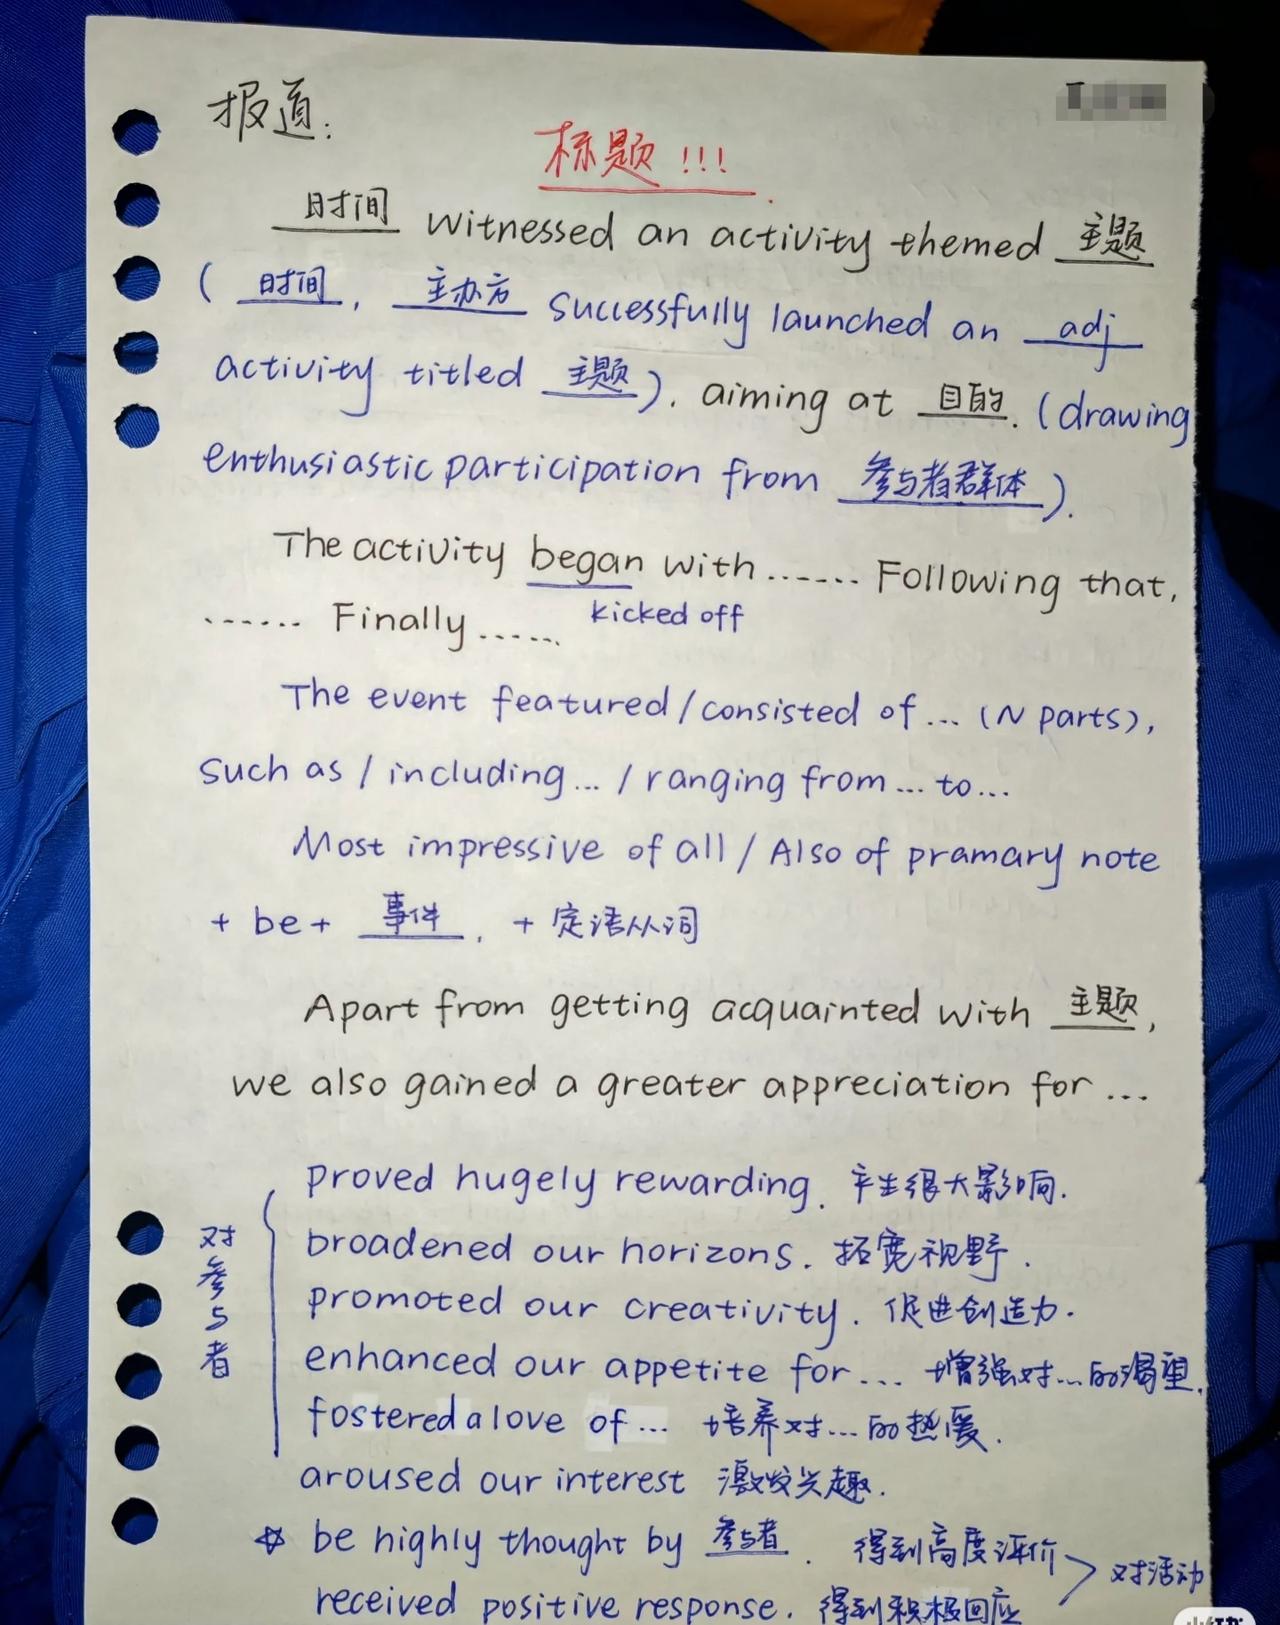 报道:
标题!!!
时间 witnessed an activity themed 主题
( 时间, 主办方 successfully launched an adj
activity titled 主题). aiming at 目的. (drawing
enthusiastic participation from 参与者群体).
The activity began with ...... Following that,
kicked off
...... Finally ......
The event featured / consisted of ... (N parts),
such as / including ... / ranging from ... to ...
Most impressive of all / Also of pramary note
+ be + 事件, + 定语从词
Apart from getting acquainted with 主题,
we also gained a greater appreciation for ...
对参与者
proved hugely rewarding. 产生很大影响.
broadened our horizons. 拓宽视野.
promoted our creativity. 促进创造力.
enhanced our appetite for ... 增强对...的渴望.
fostered a love of ... 培养对...的热爱.
aroused our interest 激发兴趣.
☆ be highly thought by 参与者. 得到高度评价
received positive response. 得到积极回应
> 对活动
小红书